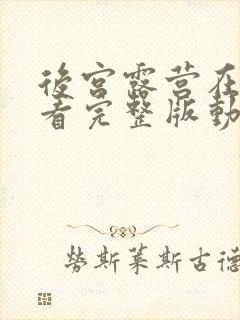 後宮露营在
看完整版動
勞斯萊斯古德